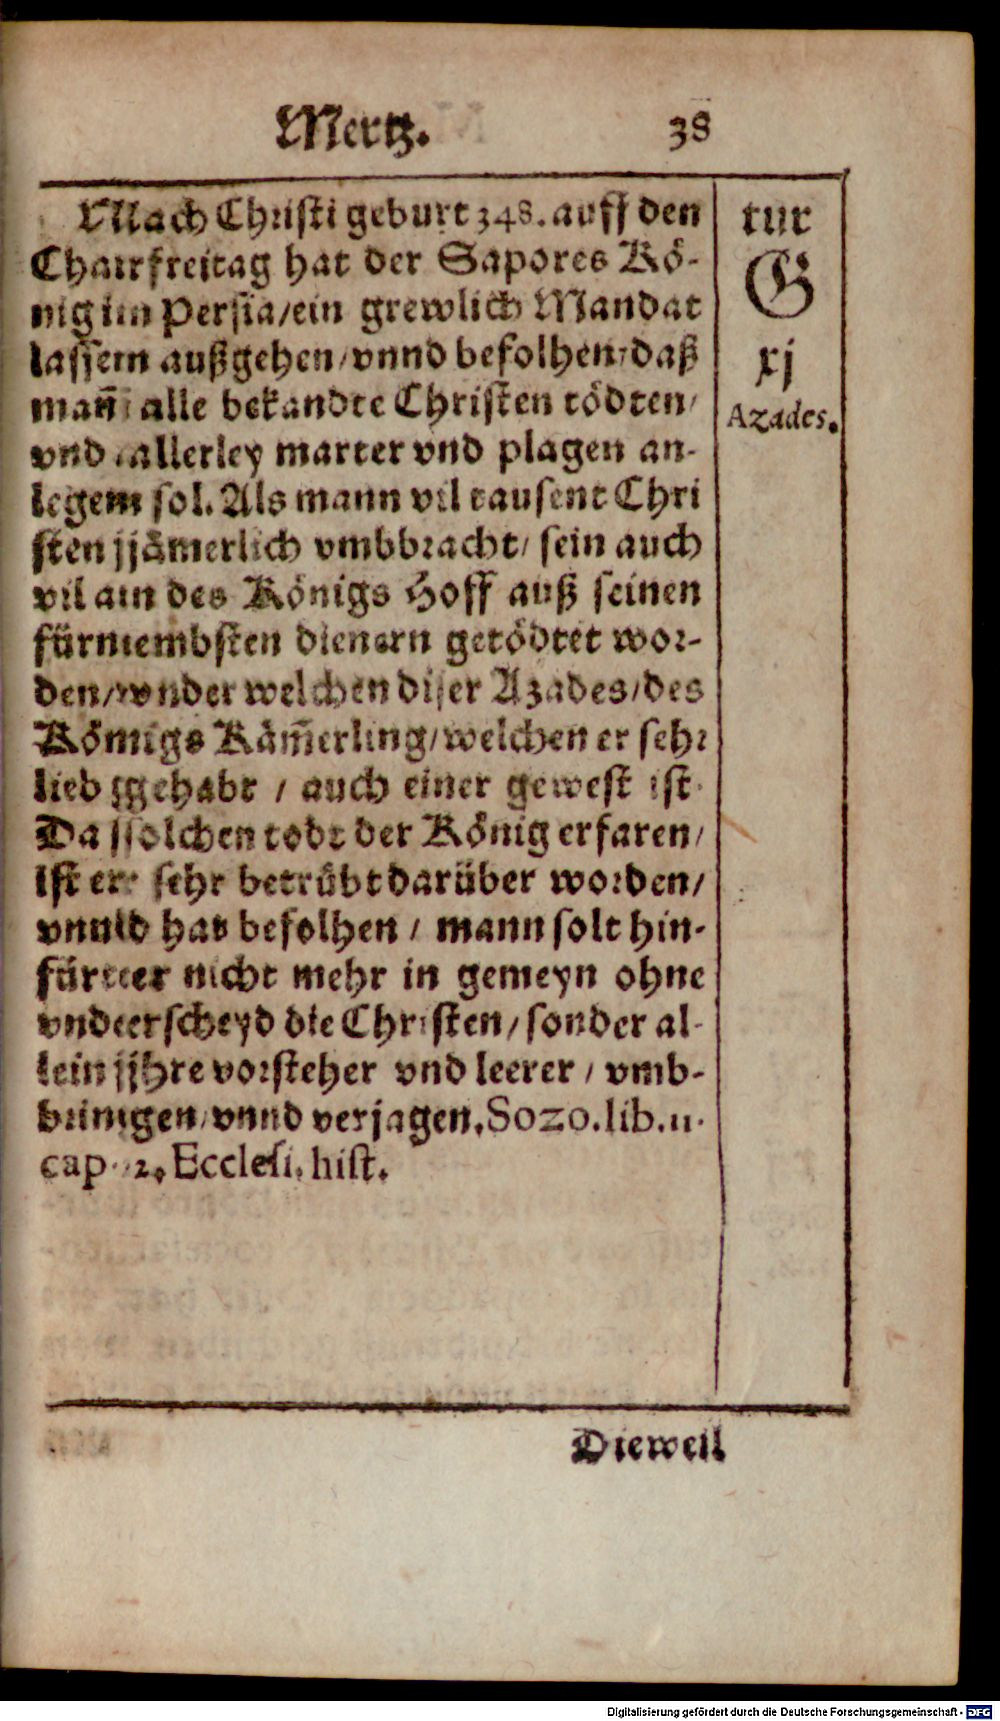 Mertz. 38
Nach Christi geburt 348. auff den
Charfreitag hat der Sapores Kö-
nig inn Persia/ein grewlich Mandat
lassenn außgehen/vnnd befolhen/daß
mañ alle bekandte Christen tödten/
vnd allerley marter vnd plagen an-
legenn sol. Als mann vil tausent Chri
sten jämerlich vmbbracht/ sein auch
vil ann des Königs Hoff auß seinen
fürnembsten dienern getödtet wor-
den/vnder welchen diser Azades/des
Königs Käm̄erling/welchen er sehr
lieb gehabt / auch einer gewest ist.
Da solchen todt der König erfaren/
ist er sehr betrübt darüber worden/
vnnd hat befolhen / mann solt hin-
fürter nicht mehr in gemeyn ohne
vnderscheyd die Christen/sonder al-
lein jhre vorsteher vnd leerer / vmb-
bringen/vnnd verjagen. Sozo. lib. 11.
cap. 2. Ecclesi. hist.
rur
G
xj
Azades.
Dieweil
Digitalisierung gefördert durch die Deutsche Forschungsgemeinschaft - DFG